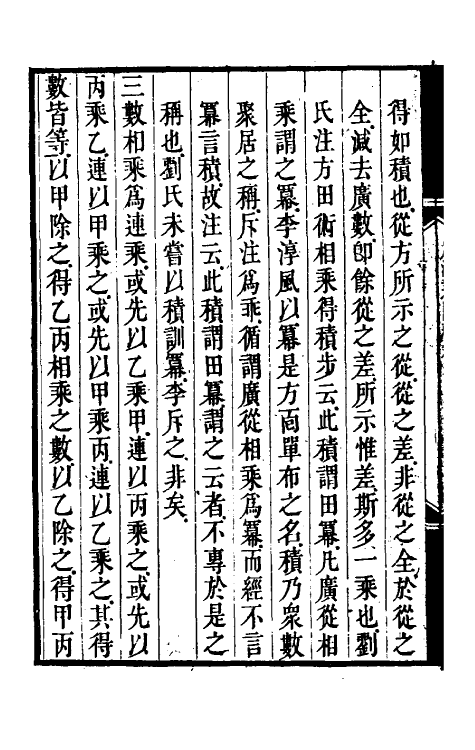 得如積也從方所示之從從之差非從之全於從之
全減去廣數卽餘從之差所示惟差斯多一乘也劉
氏注方田術相乘得積步云此積謂田冪凡廣從相
乘謂之冪李淳風以冪是方面單布之名積乃衆數
聚居之稱斥注爲乖循謂廣從相乘爲冪而經不言
冪言積故注云此積謂田冪謂之云者不專於是之
稱也劉氏未嘗以積訓冪李斥之非矣
三數相乘爲連乘或先以乙乘甲連以丙乘之或先以
丙乘乙連以甲乘之或先以甲乘丙連以乙乘之其得
數皆等以甲除之得乙丙相乘之數以乙除之得甲丙